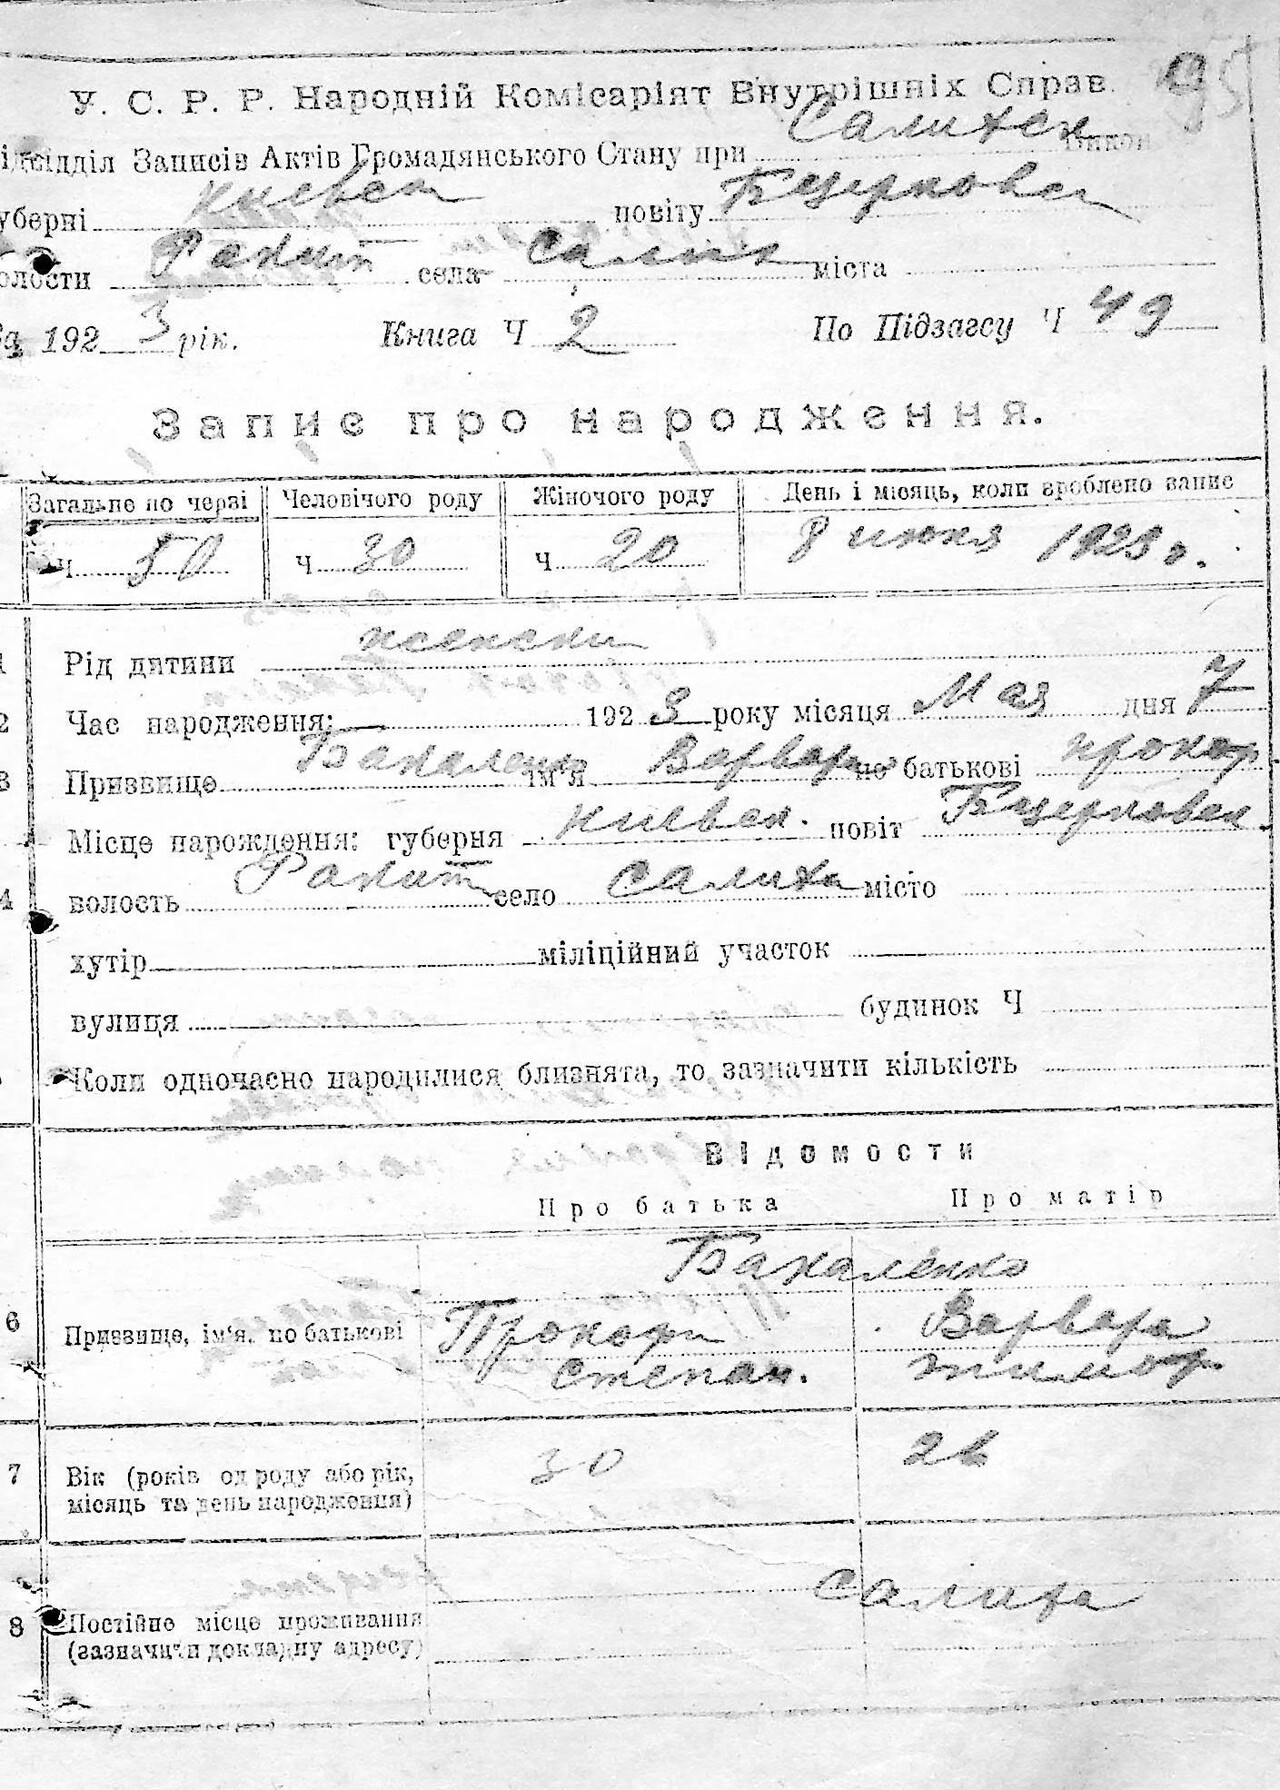 95
У. С. Р. Р. Народній Комісаріят Внутрішніх Справ.
підвідділ Записів Актів Громадянського Стану при Салихск Викон
губерні Киевск повіту Бцерковск
волости Ракит села Салих міста
за 1923 рік. Книга Ч 2 По Підзагсу Ч 49
Запис про народження.
Загальне по черзі Человічого роду Жіночого роду День і місяць, коли зроблено запис
Ч 50 Ч 30 Ч 20 8 июня 1923 г.
1 Рід дитини женский
2 Час народження: 1923 року місяця Мая дня 7
3 Призвище Бакаленко ім'я Варвара по батькові Прокоф
Місце народження: губерня Киевск. повіт Бцерковск.
4 волость Ракит село Салиха місто
хутір міліційний участок
вулиця будинок Ч
Коли одночасно народилися близнята, то зазначити кількість
Відомости
Про батька Про матір
Бакаленко
6 Призвище, ім'я, по батькові Прокофи Варвара
Степан. Тимоф.
7 Вік (років од роду або рік, 30
місяць та день народження)
Салиха
8 Постійне місце проживання
(зазначити докладну адресу)